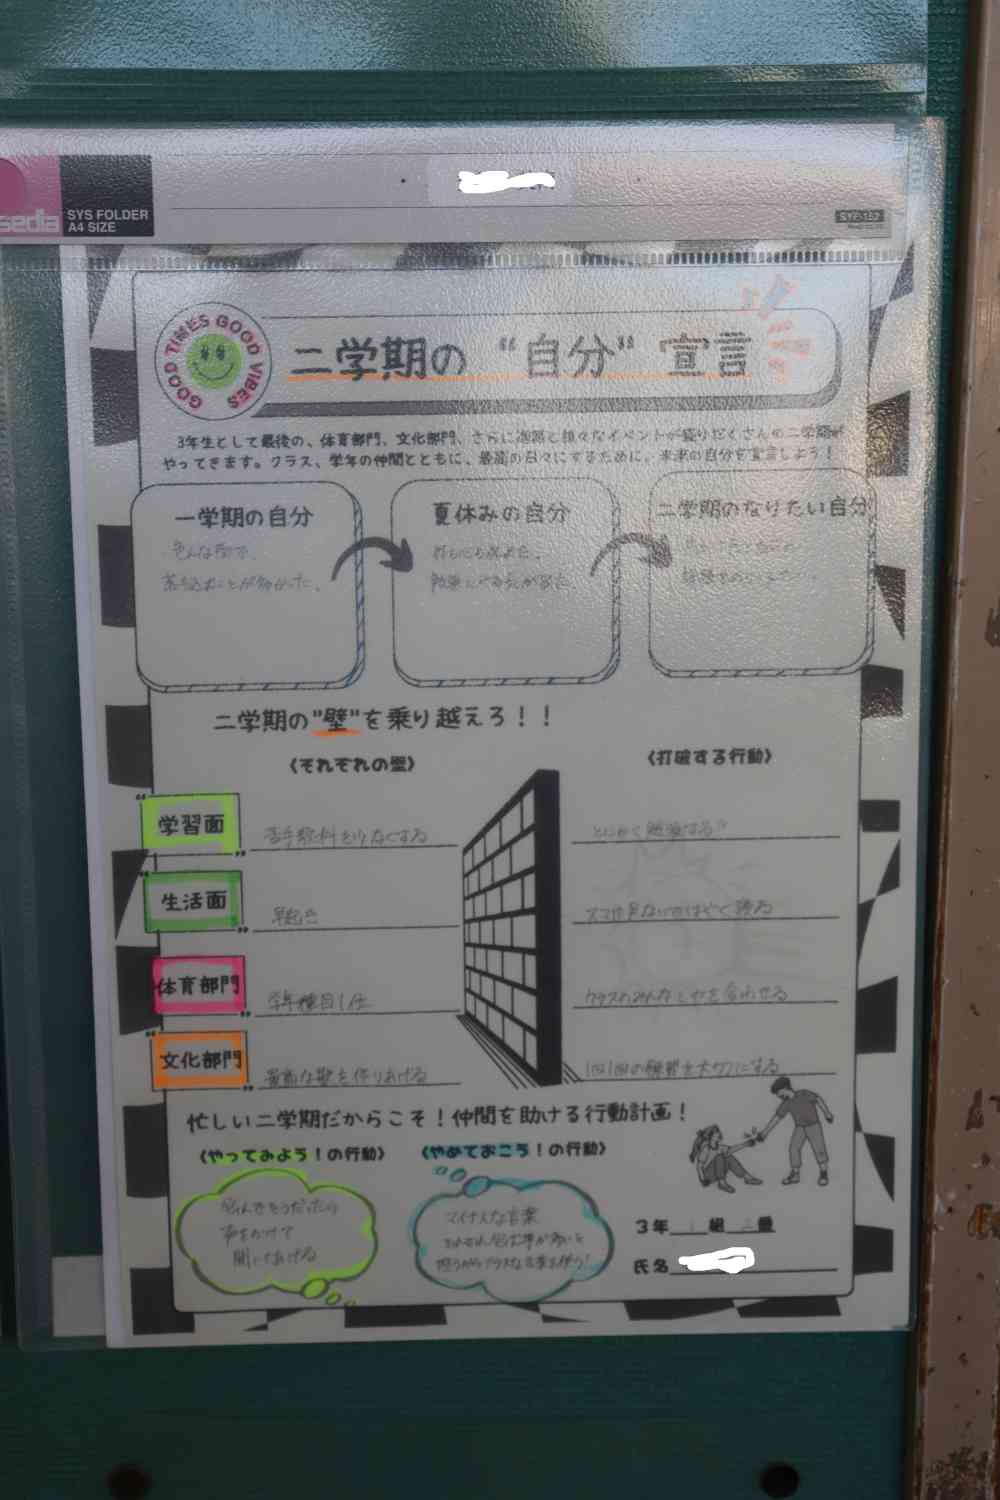 sedia
SYS FOLDER
A4 SIZE
SYF-152
GOOD TIMES GOOD VIBES
二学期の “自分” 宣言
3年生として最後の、体育部門、文化部門、さらに進路と様々なイベントが盛りだくさんの二学期が
やってきます。クラス、学年の仲間とともに、最高の日々にするために、未来の自分を宣言しよう！
一学期の自分
色んな面で、
落ち込むことが多かった。
夏休みの自分
二学期のなりたい自分
二学期の"壁"を乗り越えろ！！
《それぞれの壁》
《打破する行動》
"学習面"
苦手教科を少なくする
とにかく勉強する
"生活面"
早起き
スマホ見ないではやく寝る
体育部門
学年種目1位
クラスのみんなと力を合わせる
"文化部門"
最高な歌を作りあげる
1回1回の練習を大切にする
忙しい二学期だからこそ！仲間を助ける行動計画！
《やってみよう！の行動》
《やめておこう！の行動》
悩んでそうだったら
声をかけて
聞いてあげる
マイナスな言葉
思うからプラスな言葉を使う！
3年 1 組 番
氏名